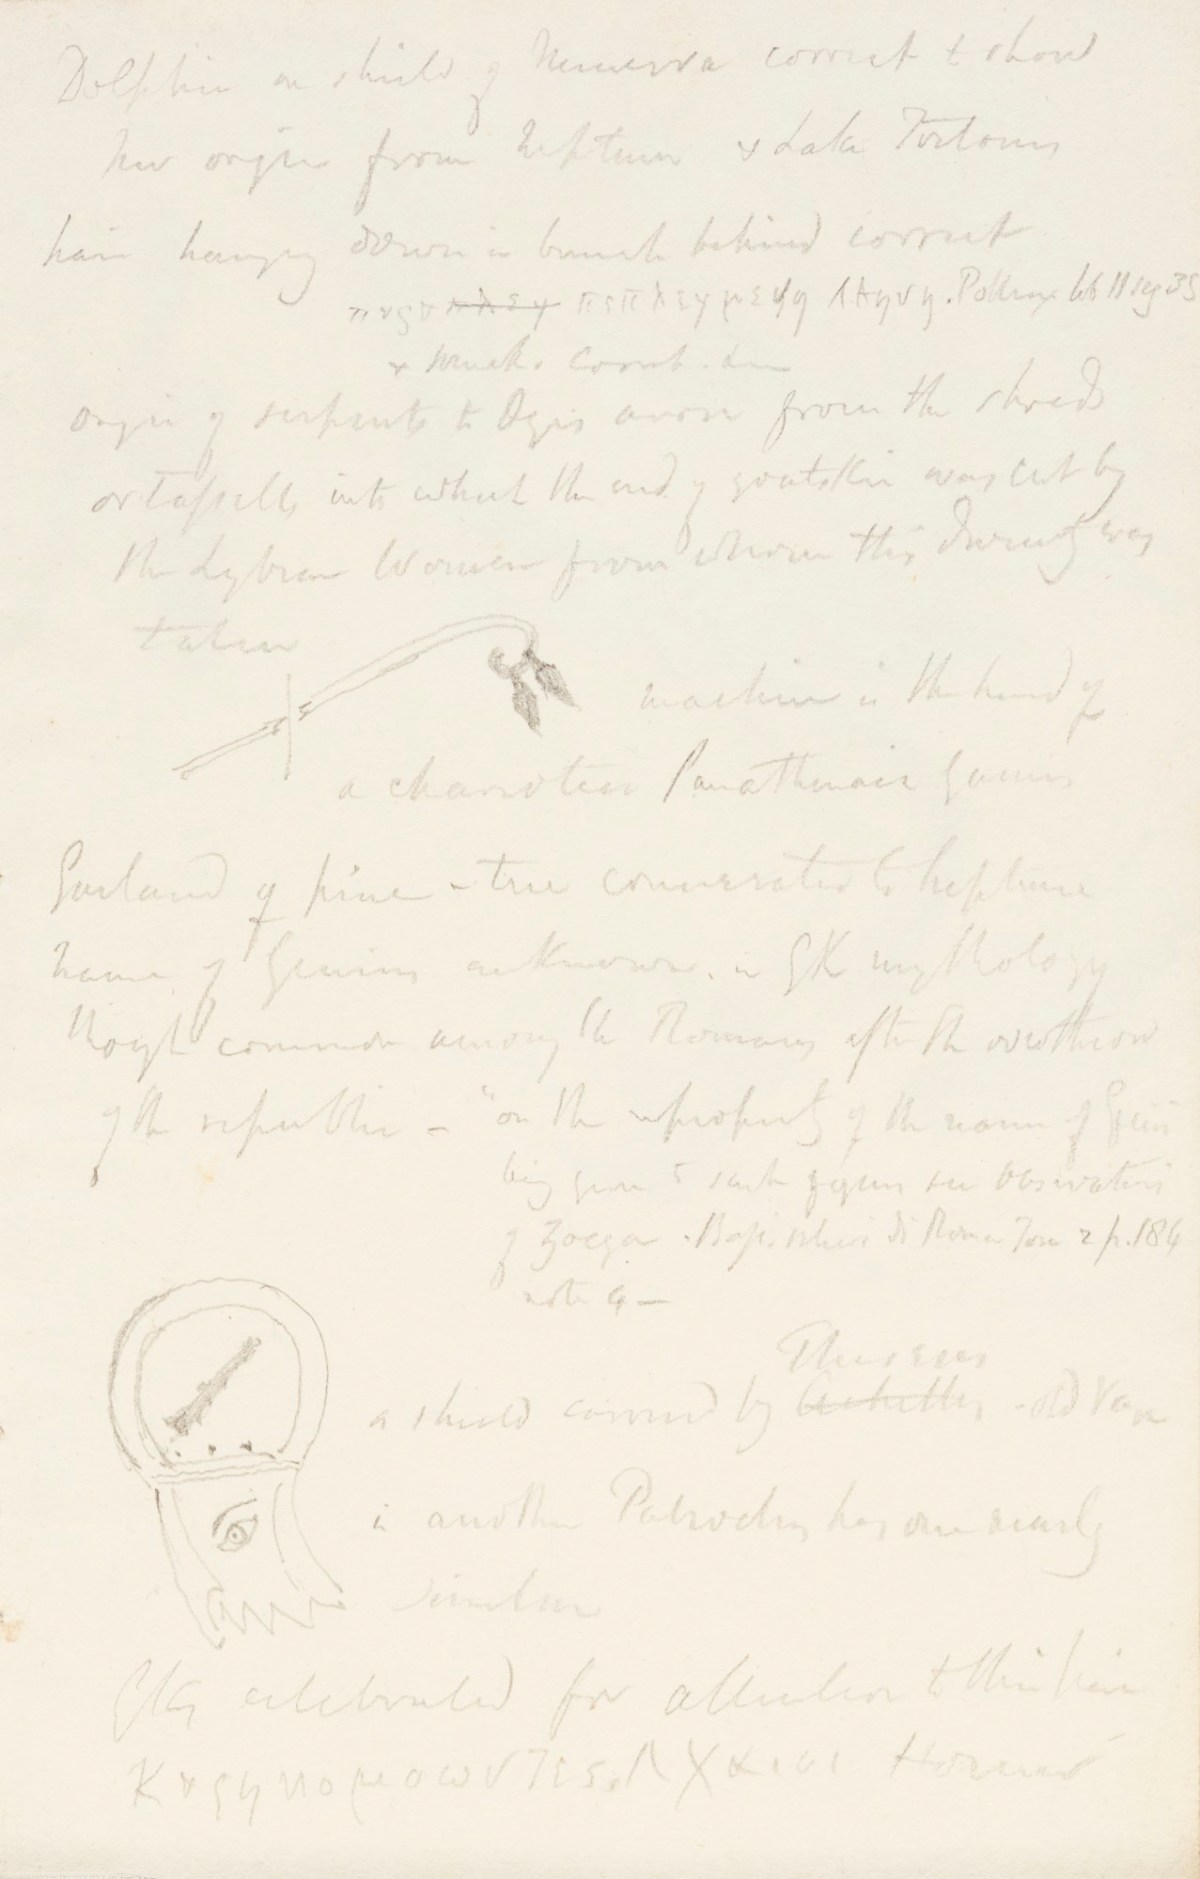 Dolphin on shield of Minerva correct & shows
her origin from Neptune & Lake Tritonis
hair hanging down in bunch behind correct
πεπλεγμενη Pollux lib II seg 35
origin of serpents to Ægis arose from the shreds
or tassells into which the end of goatskin was cut by
the Lybian Women from whom this was
taken
machine in the hand of
a charioteer Panathenaic Genius
Garland of pine - tree consecrated to Neptune
name of Genius unknown in GK mythology
though common among the Romans after the overthrow
of the republic - "on the of the name of Genii
being given to such figures see observations
of Zoega. Bassirilievi di Roma Tom 2 p. 184
note 4 -
Theseus
a shield carried by Achilles - old Vase
in another Patroclus has one nearly
similar
Gks celebrated for attention to their hair
Καρηκομοωντες Αχαιοι Homer